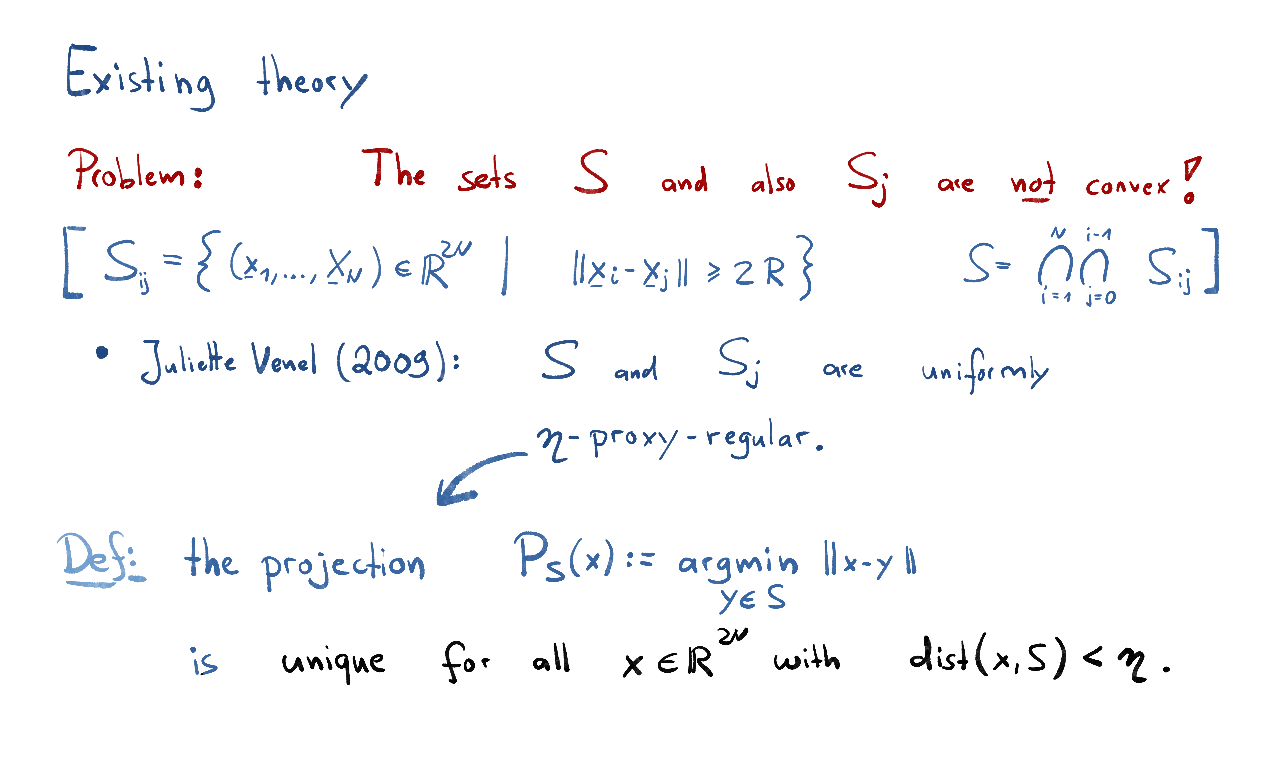 Existing theory
Problem: The sets S and also Sj are not convex!
[ Sij = { (x1, ..., XN) ∈ ℝ^2N | ||xi - xj|| ⩾ 2R } S = ⋂_{i=1}^{N} ⋂_{j=0}^{i-1} Sij ]
• Juliette Venel (2009): S and Sj are uniformly
η-proxy-regular.
Def: the projection Ps(x) := argmin ||x-y||
y∈S
is unique for all x ∈ ℝ^2N with dist(x,S) < η.